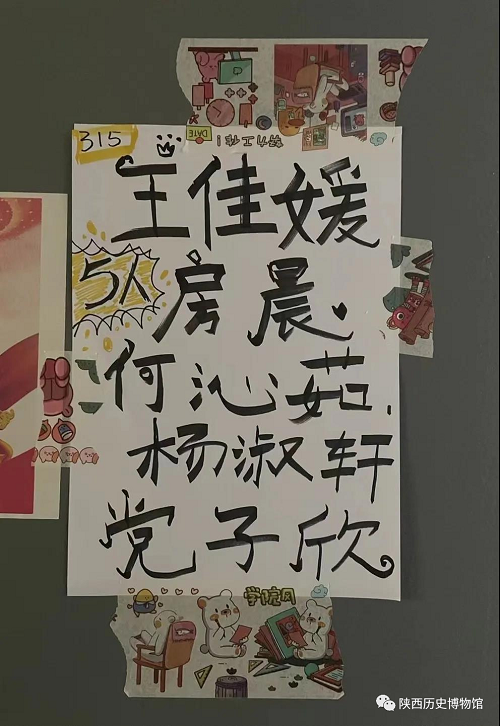 DATE
努力工作！
315
王佳媛
5人
房晨
何沁茹
杨淑轩
党子欣
学院风
陕西历史博物馆